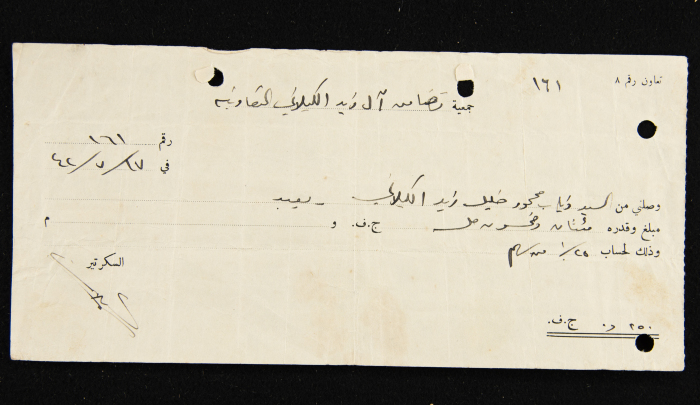 تعاون رقم ٨
١٦١
جمعية تضامن آل زيد الكيلاني التعاونية
رقم ١٦١
في ١٧/٧/٤٢
وصلني من السيد ذياب محمود خليل زيد الكيلاني - يعبد
مبلغ وقدره مئتان وخمسون مل ج.ف. و م
وذلك لحساب ١/٢٥ من سهم
السكرتير
٢٥٠ و٠ ج.ف.